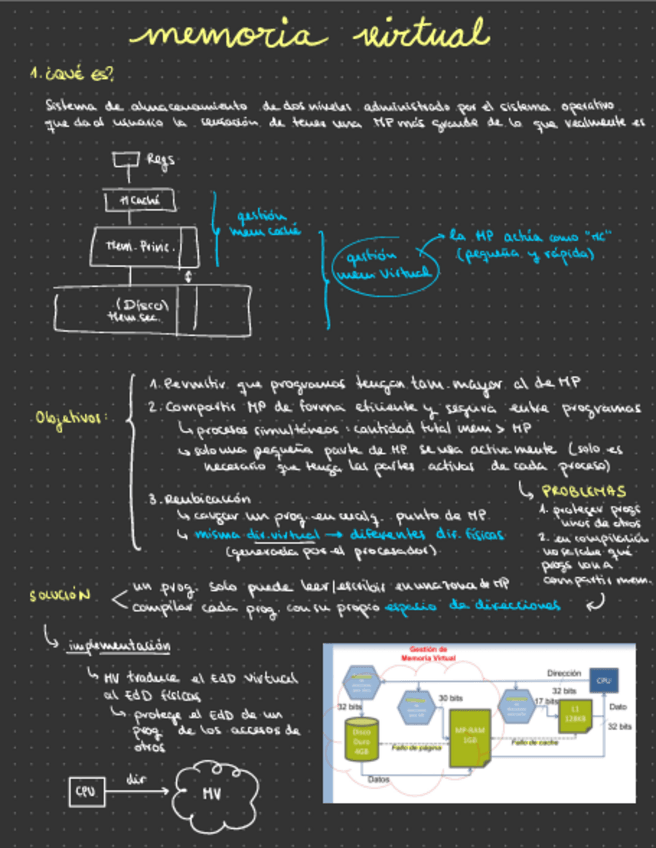 memoria virtual
1. ¿QUÉ ES?
Sistema de almacenamiento de dos niveles administrado por el sistema operativo
que da al usuario la sensación de tener una MP más grande de lo que realmente es
Regs
MCaché
Mem. Princ.
(Disco)
Mem. sec.
gestión
mem caché
gestión
mem virtual
la MP actúa como "MC"
(pequeña y rápida)
Objetivos:
1. Permitir que programas tengan tam. mayor al de MP
2. Compartir MP de forma eficiente y segura entre programas
↳ procesos simultáneos: cantidad total mem > MP
↳ solo una pequeña parte de MP se usa activamente (solo es
necesario que tenga las partes activas de cada proceso)
3. Reubicación
↳ cargar un prog. en cualq. punto de MP
↳ misma dir. virtual → diferentes dir. físicas
(generada por el procesador)
↳ PROBLEMAS
1. proteger progs
unos de otros
2. en compilación
no se sabe qué
progs van a
compartir mem.
SOLUCIÓN
un prog. solo puede leer/escribir en una zona de MP
compilar cada prog. con su propio espacio de direcciones
↳ implementación
↳ MV traduce el EdD virtual
al EdD físicas
↳ protege el EdD de un
prog. de los accesos de
otros
CPU
dir
MV
Gestión de
Memoria Virtual
Dirección
CPU
32 bits
30 bits
17 bits
32 bits
L1
128KB
Dato
32 bits
Disco
Duro
4GB
MP-RAM
1GB
Fallo de página
Fallo de cache
Datos